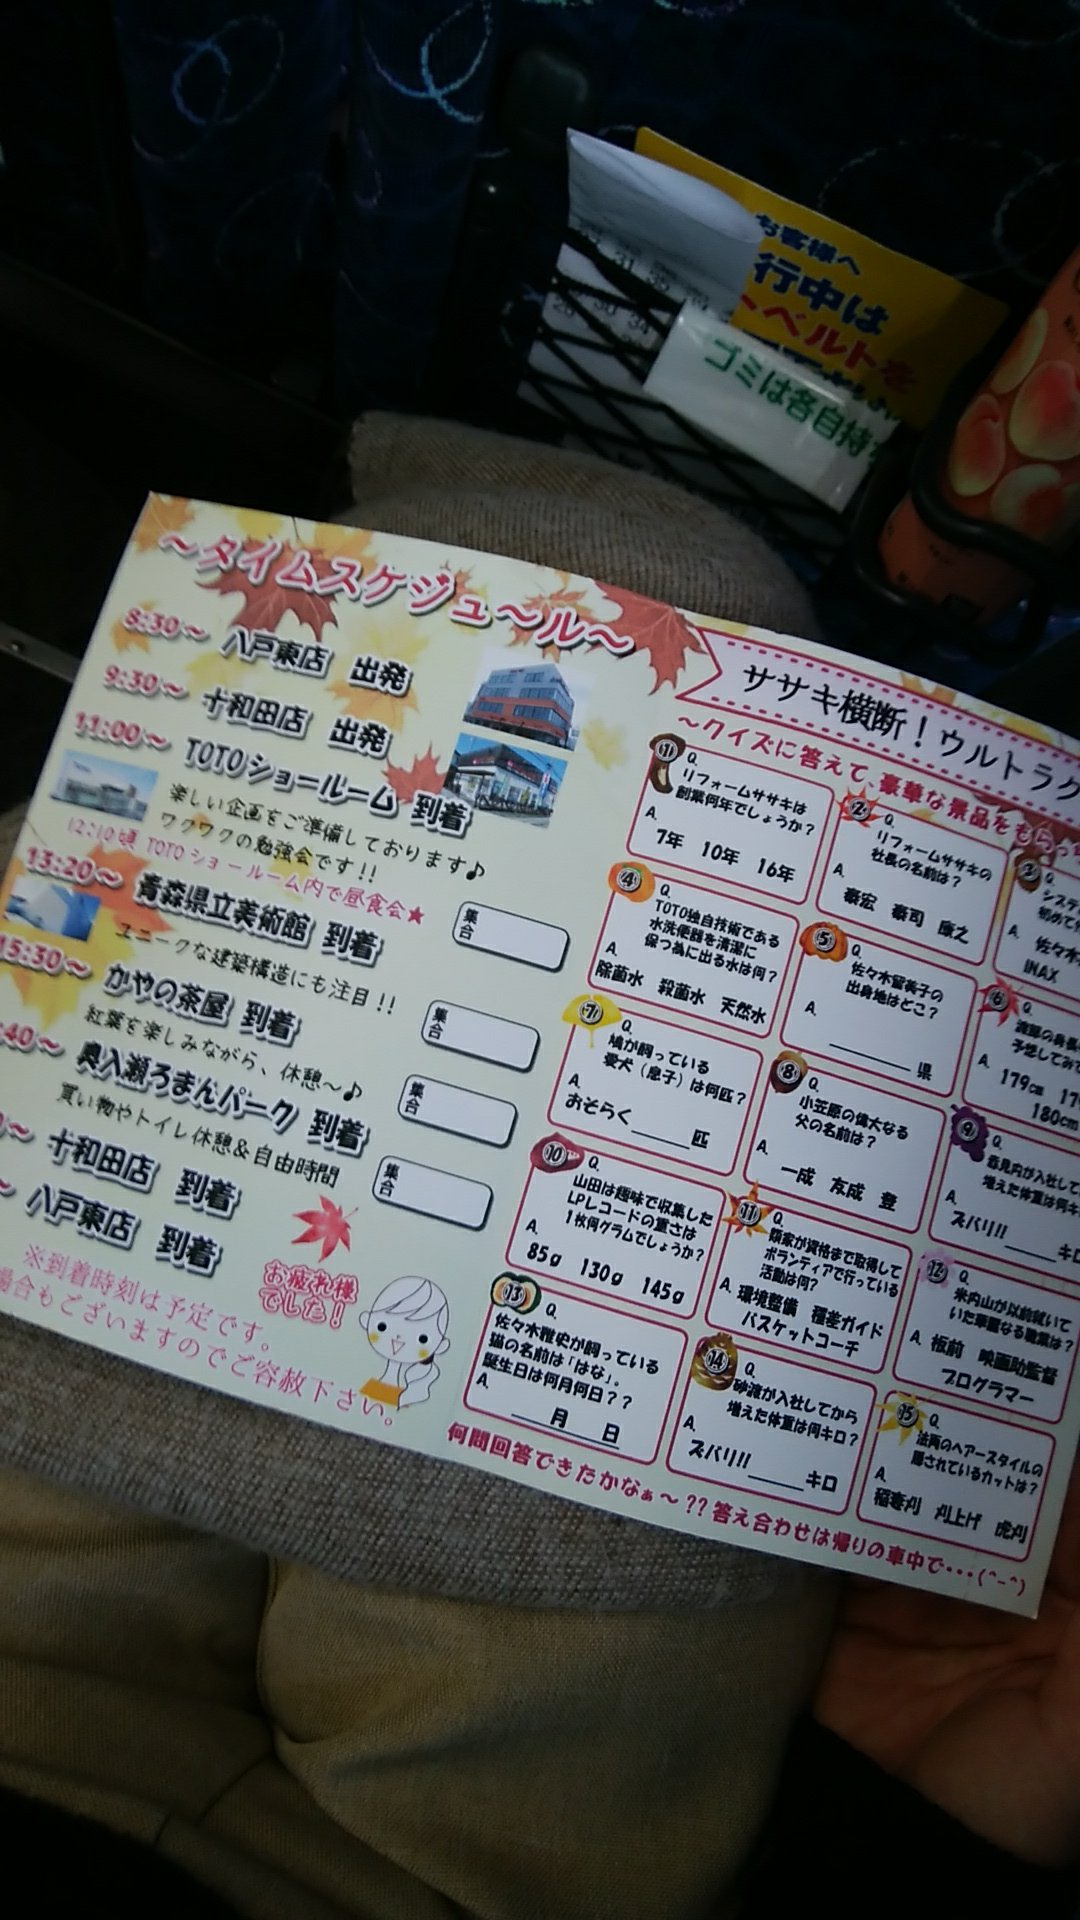 お客様へ
行中は
トベルトを
ゴミは各自持
～タイムスケジュ～ル～
8:30～ 八戸東店 出発
9:30～ 十和田店 出発
11:00～ TOTOショールーム 到着
楽しい企画をご準備しております♪
ワクワクの勉強会です!!
12:10頃 TOTOショールーム内で昼食会★
13:20～ 青森県立美術館 到着
集合
ユニークな建築構造にも注目!!
15:30～ かやの茶屋 到着
集合
紅葉を楽しみながら、休憩～♪
:40～ 奥入瀬ろまんパーク 到着
集合
買い物やトイレ休憩&自由時間
集合
十和田店 到着
八戸東店 到着
※到着時刻は予定です。
場合もございますのでご容赦下さい。
お疲れ様
でした!
ササキ横断!ウルトラク
～クイズに答えて、豪華な景品をもらっ
① Q.
リフォームササキは
創業何年でしょうか?
A.
7年 10年 16年
② Q.
リフォームササキの
社長の名前は?
A.
泰宏 泰司 康之
③ Q.
システ
初めて
A.
佐々木
INAX
④ Q.
TOTO独自技術である
水洗便器を清潔に
保つ為に出る水は何?
A.
除菌水 殺菌水 天然水
⑤ Q.
佐々木留美子の
出身地はどこ?
A.
県
⑥ Q.
渡葉の身長
予想してみて
A.
179cm 17
180cm
⑦ Q.
鳩が飼っている
愛犬(息子)は何匹?
A.
おそらく 匹
⑧ Q.
小笠原の偉大なる
父の名前は?
A.
一成 友成 登
⑨ Q.
赤見内が入社して
増えた体重は何キ
A.
ズバリ!! キ
⑩ Q.
山田は趣味で収集した
LPレコードの重さは
1枚何グラムでしょうか?
A.
85g 130g 145g
⑪ Q.
類家が資格まで取得して
ボランティアで行っている
活動は何?
A. 環境整備 種差ガイド
バスケットコーチ
⑫ Q.
米内山が以前就いて
いた華麗なる職業は?
A. 板前 映画助監督
プログラマー
⑬ Q.
佐々木雅史が飼っている
猫の名前は「はな」。
誕生日は何月何日??
A.
月 日
⑭ Q.
砂渡が入社してから
増えた体重は何キロ?
A.
ズバリ!! キロ
⑮ Q.
法両のヘアースタイルの
隠されているカットは?
A.
稲妻刈 刈上げ 虎刈
何問回答できたかなぁ～??答え合わせは帰りの車中で・・・(^-^)